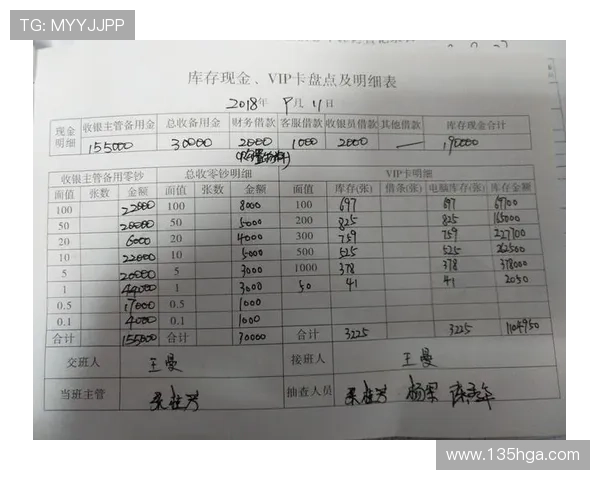 TG: MYYJJPP
库存现金、VIP卡盘点及明细表
2018年 9月 11日
现金明细 收银主管备用金 总收备用金 财务借款 客服借款 收银员借款 其他借款 库存现金合计
155000 30000 2000 1000 2000 — 190000
收银主管备用零钞 总收零钞明细 VIP卡明细
面值 张数 金额 面值 张数 金额 面值 库存(张) 借条(张) 电脑库存(张) 库存金额
100 22000 100 8000 100 697 697 69700
50 20000 50 5000 200 825 825 165000
20 6000 20 4000 300 759 759 227700
10 22000 10 5000 500 525 525 262500
5 20000 5 3000 1000 378 378 378000
1 44000 1 3000 50 41 41 2050
0.5 17000 0.5 1000
0.1 4000 0.1 1000
合计 155000 合计 30000 合计 3225 3225 1104950
交班人 王曼 接班人 王曼
当班主管 桂芳 抽查人员 桂芳 杨军
www.135hga.com